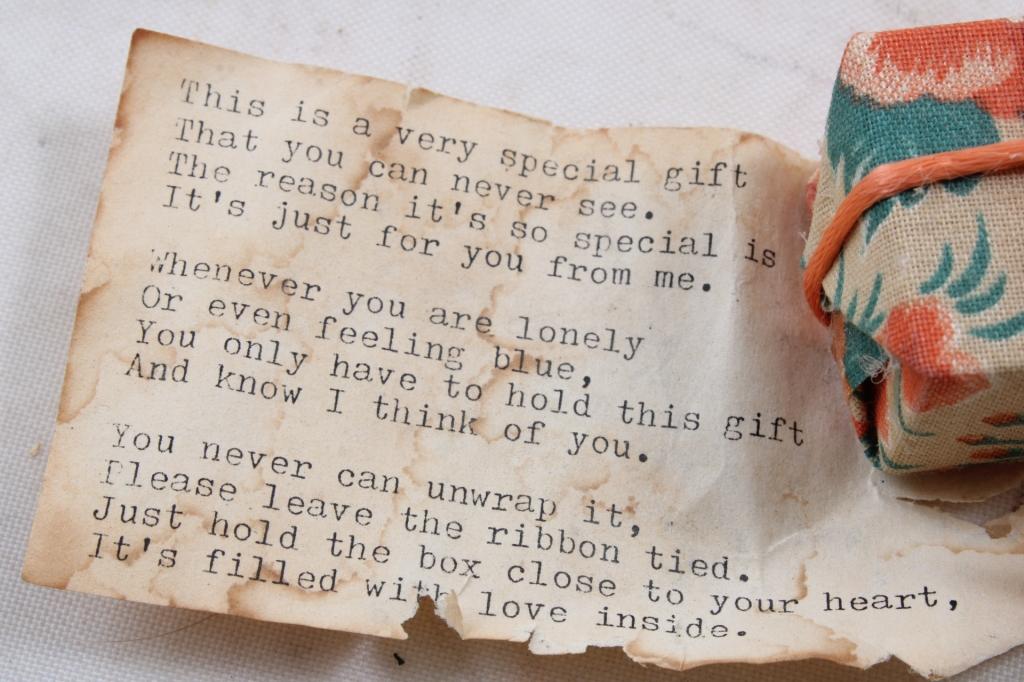 This is a very special gift
That you can never see.
The reason it's so special is
It's just for you from me.
Whenever you are lonely
Or even feeling blue,
You only have to hold this gift
And know I think of you.
You never can unwrap it,
Please leave the ribbon tied.
Just hold the box close to your heart,
It's filled with love inside.